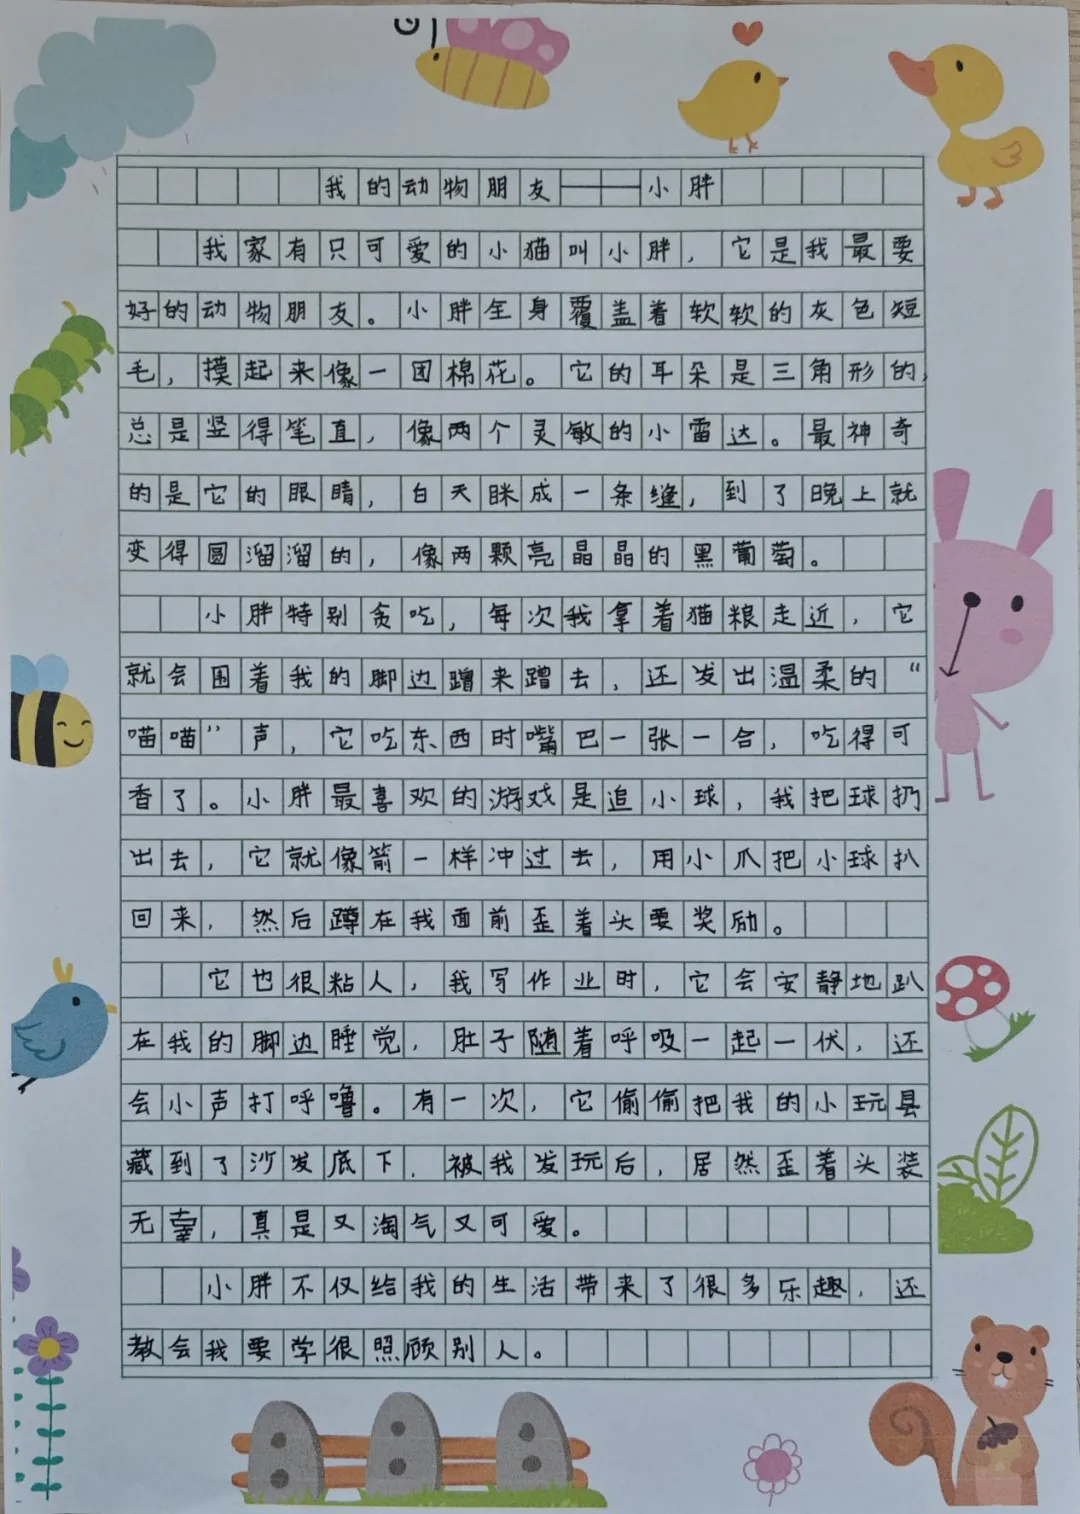 我的动物朋友——小胖
我家有只可爱的小猫叫小胖，它是我最要
好的动物朋友。小胖全身覆盖着软软的灰色短
毛，摸起来像一团棉花。它的耳朵是三角形的，
总是竖得笔直，像两个灵敏的小雷达。最神奇
的是它的眼睛，白天眯成一条缝，到了晚上就
变得圆溜溜的，像两颗亮晶晶的黑葡萄。
小胖特别贪吃，每次我拿着猫粮走近，它
就会围着我的脚边蹭来蹭去，还发出温柔的“
喵喵”声，它吃东西时嘴巴一张一合，吃得可
香了。小胖最喜欢的游戏是追小球，我把球扔
出去，它就像箭一样冲过去，用小爪把小球扒
回来，然后蹲在我面前歪着头要奖励。
它也很粘人，我写作业时，它会安静地趴
在我的脚边睡觉，肚子随着呼吸一起一伏，还
会小声打呼噜。有一次，它偷偷把我的小玩具
藏到了沙发底下，被我发玩后，居然歪着头装
无辜，真是又淘气又可爱。
小胖不仅给我的生活带来了很多乐趣，还
教会我要学很照顾别人。